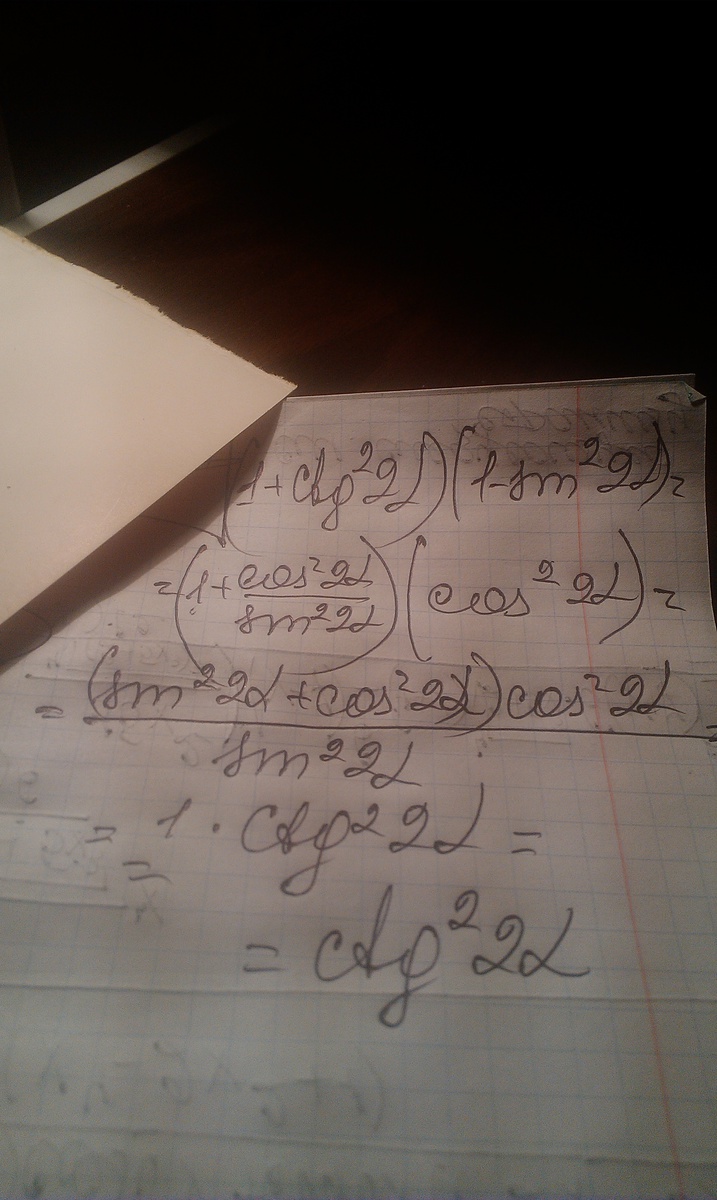 (1+ctg²2α)(1-sin²2α)=
=(1+cos²2α/sin²2α)(cos²2α)=
=(sin²2α+cos²2α)cos²2α/sin²2α=
=1·ctg²2α=
=
=ctg²2α